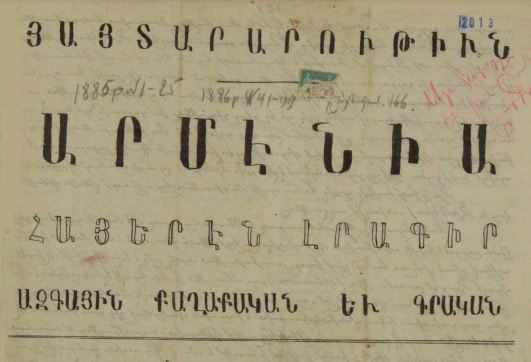 2013
ՅԱՅՏԱՐԱՐՈՒԹԻՒՆ
1885 թ. №1-25 1886 թ. №41-99
ԱՐՄԷՆԻԱ
ՀԱՅԵՐԷՆ ԼՐԱԳԻՐ
ԱԶԳԱՅԻՆ ՔԱՂԱՔԱԿԱՆ ԵՒ ԳՐԱԿԱՆ